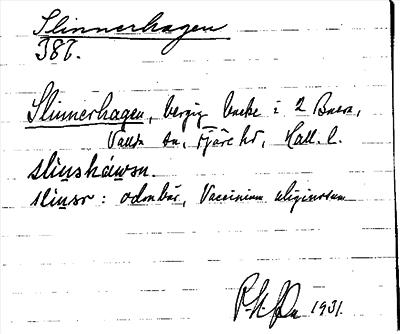 Slinnerhagen
38c.
Slinnerhagen, bergig backe i 2 Buera,
Vallda sn, Fjäre hd, Hall. l.
slìnshá̤wən.
slinər: odonbär, Vaccinium uliginosum
1931.